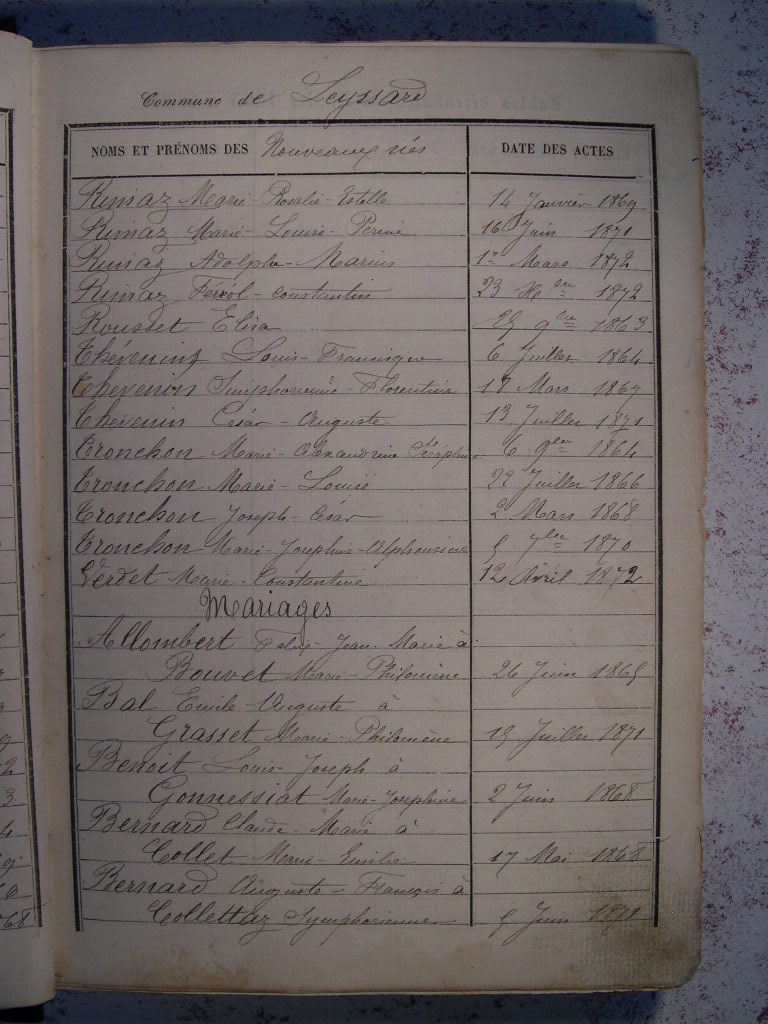 Commune de Leyssard
NOMS ET PRÉNOMS DES Nouveaux nés DATE DES ACTES
Rimaz Marie-Rosalie-Estelle 14 Janvier 1869
Rimaz Marie-Louise-Perine 16 Juin 1871
Rimaz Adolphe-Marius 1er Mars 1872
Rimaz Féréol-Constantin 23 Xbre 1872
Rousset Elisa 25 9bre 1863
Thévenin Louis-Francisque 6 Juillet 1864
Thevenin Simphorienne-Florentine 17 Mars 1867
Thévenin César-Auguste 13 Juillet 1871
Tronchon Marie-Alexandrine Joséphine 6 9bre 1864
Tronchon Marie-Louise 22 Juillet 1866
Tronchon Joseph-César 2 Mars 1868
Tronchon Marie-Josephine-Alphonsine 5 7bre 1870
Verdet Marie-Constantine 12 Avril 1872
Mariages
Allombert Felix-Jean-Marie à
Bouvet Marie-Philomène 26 Juin 1865
Bal Emile-Auguste à
Grasset Marie-Philomène 15 Juillet 1871
Benoit Louis-Joseph à
Gonnessiat Marie-Josephine 2 Juin 1868
Bernard Claude-Marie à
Collet Marie-Emilie 17 Mai 1868
Bernard Auguste-François à
Collettaz Symphorienne 5 Juin 1871